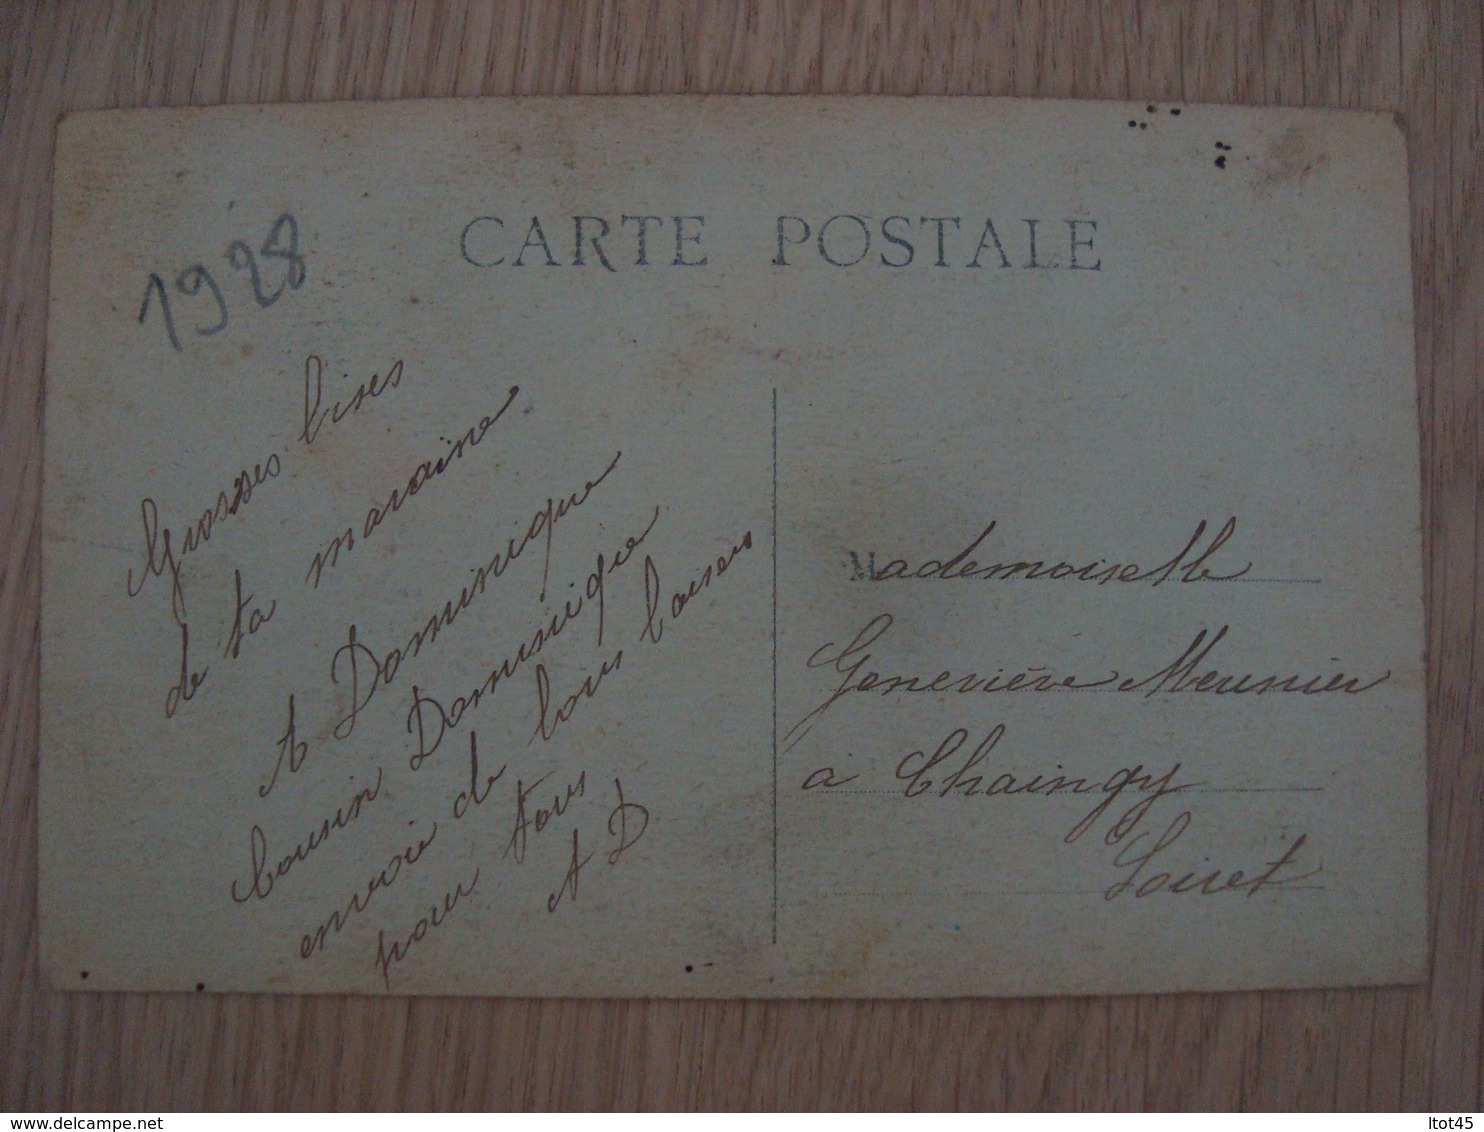 CARTE POSTALE
1928
Grosses bises
de ta maraine
A Dominique
Cousin Dominique
envoie de bons baisers
pour tous
A D
Mademoiselle
Geneviève Meunier
à Chaingy
Loiret
ltot45